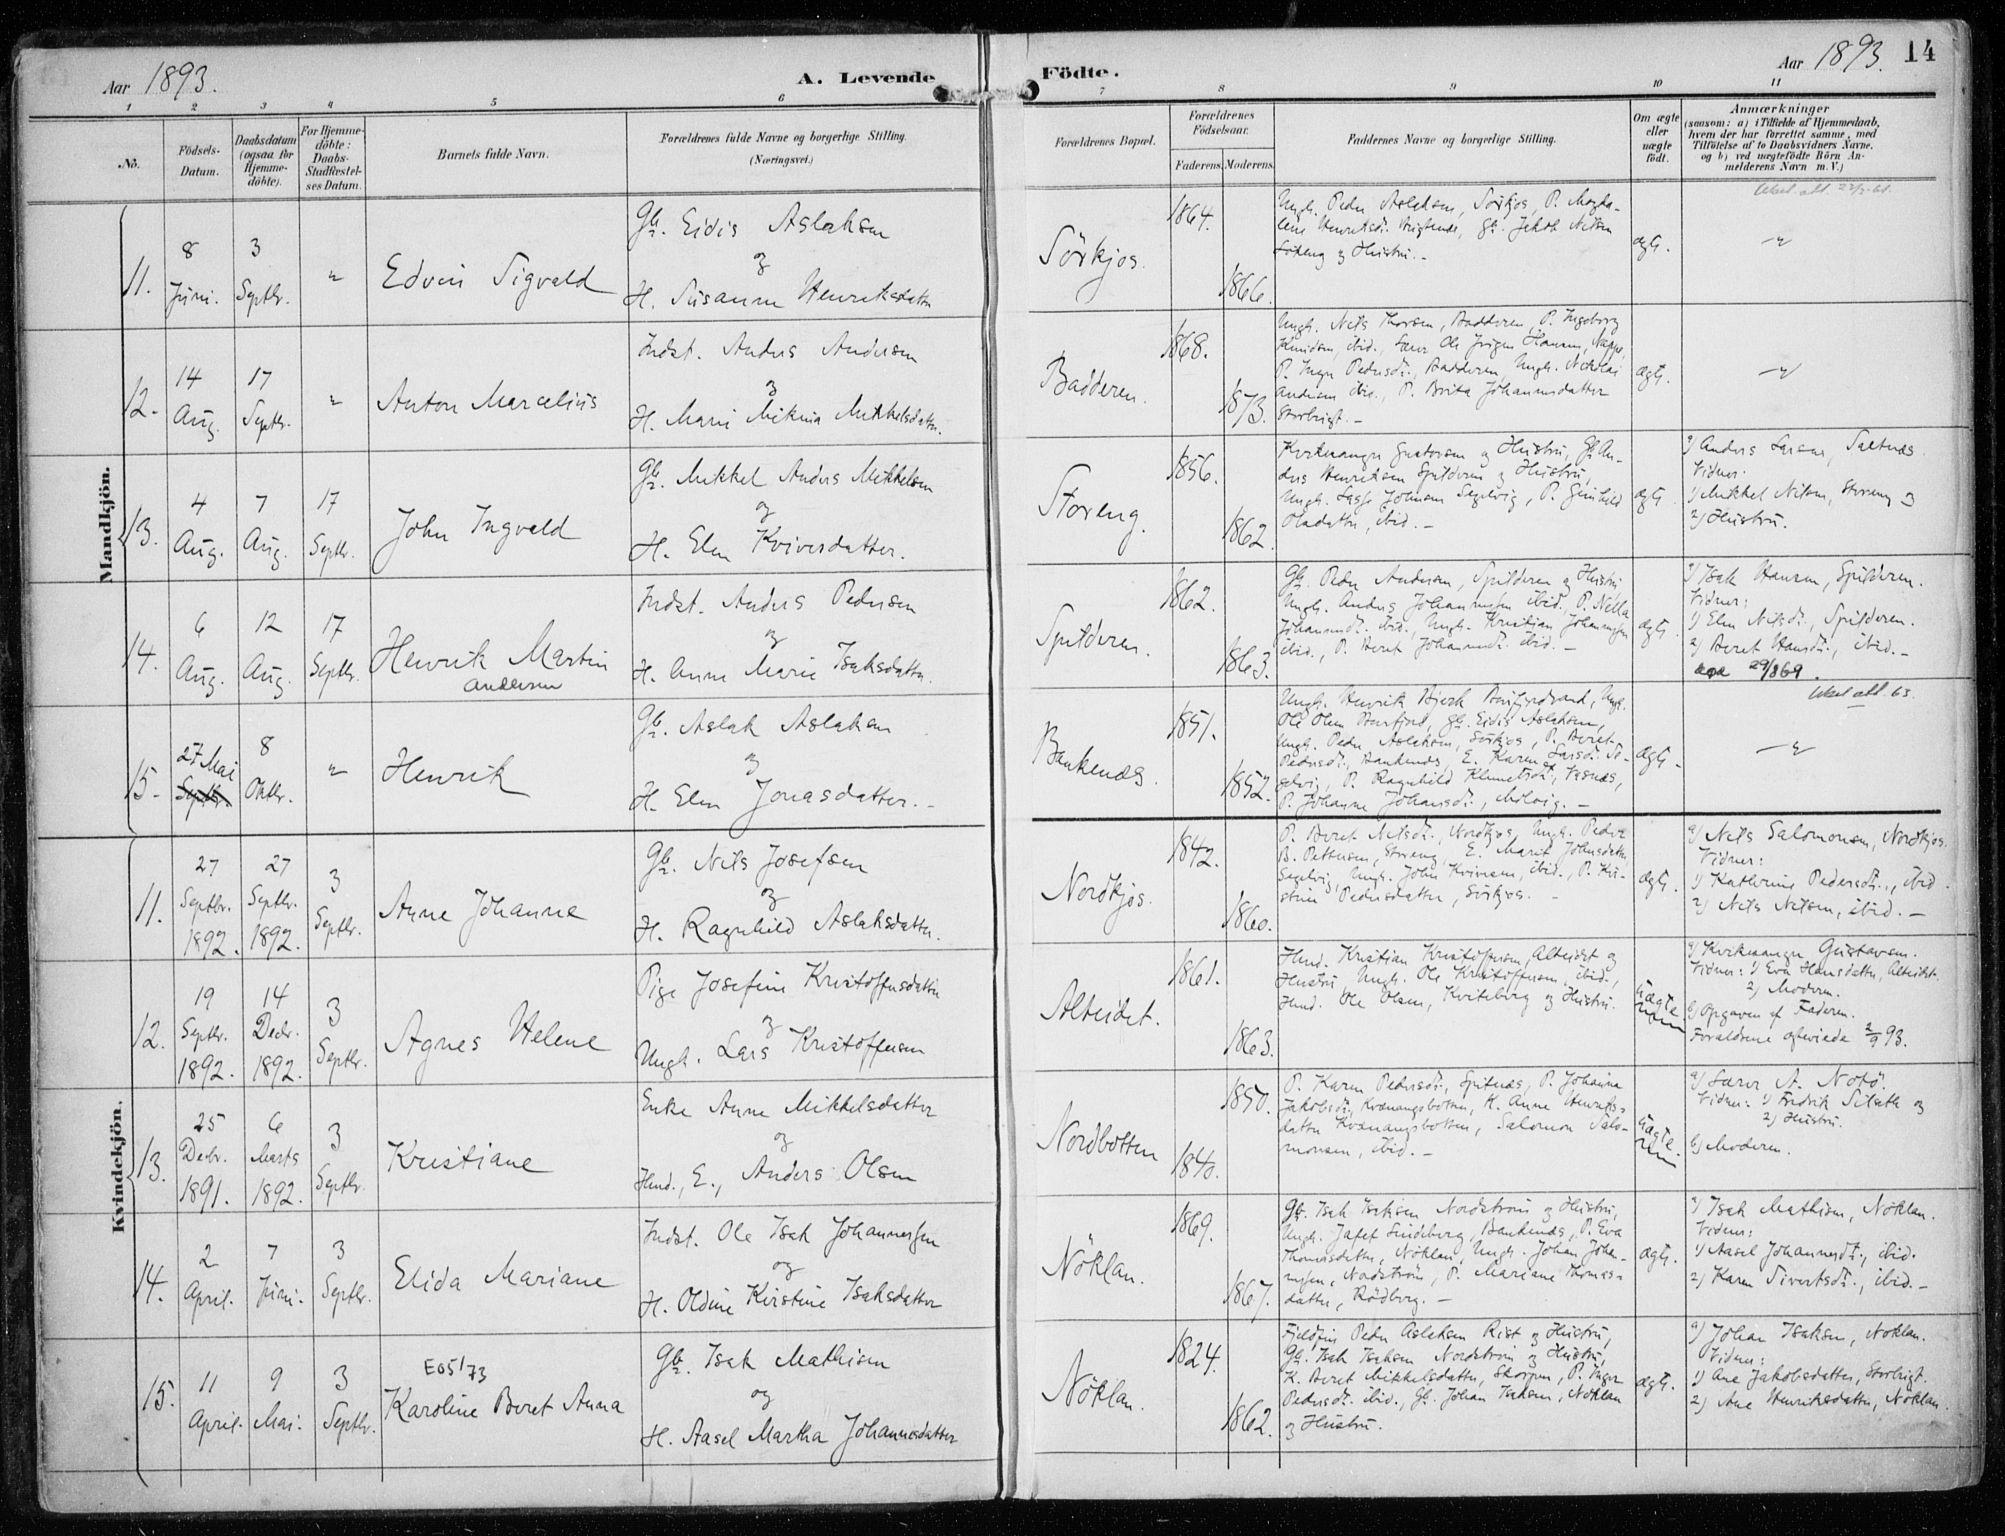 Aar 1893.
A. Levende
Födte.
Aar 1893.
14
1 2 3 4 5 6 7 8 9 10 11
No.
Födsels-Datum.
Daabsdatum (ogsaa for Hjemme-döbte).
For Hjemme-döbte: Daabs-Stadfæstel-ses Datum.
Barnets fulde Navn.
Forældrenes fulde Navne og borgerlige Stilling.
(Næringsvei.)
Forældrenes Bopæl.
Forældrenes Födselsaar.
Faderens. Moderens.
Faddernes Navne og borgerlige Stilling.
Om ægte eller uægte födt.
Anmærkninger
(saasom: a) i Tilfælde af Hjemmedaab,
hvem der har forrettet samme, med
Tilföielse af to Daabsvidners Navne,
og b) ved uægtefödte Börn An-
melderens Navn m. V.)
Mandkjön.
11.
8 Juni.
3 Septbr.
"
Edvin Sigvald
Gb. Eidis Aslaksen
og
H. Susanne Henriksdatter
Sörkjos.
1864.
1866.
Ungk. Peder Aslaksen, Sörkjos, P. Magda-
lene Henriksdt. Gb. Jakob Nilsen
og Hustru. -
ægt.
- " -
12.
14 Aug.
17 Septbr.
"
Anton Marcelius
Indst. Anders Andersen
og
H. Marie Mikkelsdatter.
Badderen.
1868.
1873.
Ungk. Nils Thorsen, Badderen, P. Ingeborg
Knudsen, ibid., Lærer Ole Jörgen Hansen,
P. Inger Pedersdt., Badderen, Ungk. Nikolai
Andersen ibid., P. Brita Johannesdatter
Storbugt. -
ægt.
- " -
13.
4 Aug.
7 Aug.
17 Septbr.
John Ingvald
Gb. Mikkel Anders Mikkelsen
og
H. Elen Kviversdatter.
Storeng.
1856.
1862.
Gustavsen og Hustru, Gb. An-
ders Henriksen Spilderen og Hustru,
Ungk. Johnsen Segelvig, P. Gunhild
Olsdatter, ibid. -
ægt.
a) Anders Larsen, Saltnæs.
Vidner:
1) Mikkel Nilsen, Storeng og
2) Hustru.
14.
6 Aug.
12 Aug.
17 Septbr.
Henrik Martin
Andersen
Indst. Anders Pedersen
og
H. Anne Marie Isaksdatter.
Spilderen.
1862.
1863.
Gb. Peder Andersen, Spilderen og Hustru
Ungk. Anders Johannessen ibid., P. Nella
Johannesdt. ibid., Ungk. Kristian Johannessen
ibid., P. Beret Johannesdt. ibid. -
ægt.
a) Isak Hansen, Spilderen.
Vidner:
1) Elen Nilsdt., Spilderen.
2) Beret Hansdt., ibid. -
29/869.
15.
27 Mai
Septbr.
8 Oktbr.
"
Henrik
Gb. Aslak Aslaksen
og
H. Elen Jonasdatter. -
Bankenæs.
1851.
1852.
Ungk. Henrik Bjerk Ungk.
Ole Olsen Burfjord, Gb. Eidis Aslaksen,
Ungk. Peder Aslaksen, Sörkjos, P. Beret
Pedersdt., Bankenæs, E. Karen Larsdt. Se-
gelvig, P. Ragnhild Klemetsdt., 
P. Johanne Johansdt., -
ægt.
- " -
Kvindekjön.
11.
27 Septbr. 1892.
27 Septbr. 1892.
3 Septbr.
Anne Johanne
Gb. Nils Josefsen
og
H. Ragnhild Aslaksdatter.
Nordkjos.
1842.
1860.
P. Beret Nilsdt., Nordkjos, Ungk. Peder
B. Pettersen, Storeng, E. Marit Johnsdatter
Segelvig, Ungk. John Kviversen, ibid., P. Kri-
stine Pedersdatter, Sörkjos. -
ægt.
a) Nils Salomonsen, Nordkjos.
Vidner:
1) Kathrine Pedersdt., ibid.
2) Nils Nilsen, ibid. -
12.
19 Septbr. 1892.
14 Decbr. 1892.
3 Septbr.
Agnes Helene
Pige Josefine Kristoffersdatter
og
Ungk. Lars Kristoffersen
Alteidet.
1861.
1863.
Hmd. Kristian Kristoffersen, Alteidet og
Hustru, Ungk. Ole Kristoffersen, ibid.,
Hmd. Ole Olsen, Kviteberg og Hustru.
uægte
a) Gustavsen.
Vidner: 1) Eva Hansdatter, Alteidet.
2) Moderen.
b) Opgaven af Faderen.
Forældrene ægteviede 2/9 93.
13.
25 Decbr. 1891.
6 Marts 1892.
3 Septbr.
Kristiane
Enke Anne Mikkelsdatter
og
Hmd., E., Anders Olsen
Nordbotten
1850.
1840.
P. Karen Pedersdt., Spitnæs, P. Johanne
Jakobsdt., Kvænangsbotten, K. Anne Henriks-
datter Kvænangsbotten, Salomon Salo-
monsen, ibid. -
uægte
a) Lærer A. Notö.
Vidner: 1) Fredrik og
2) Hustru.
b) Moderen.
14.
2 April.
7 Juni.
3 Septbr.
Elida Mariane
Indst. Ole Isak Johannessen
og
H. Oldine Kristine Isaksdatter
Nöklan.
1869.
1867.
Gb. Isak Isaksen Nordström og Hustru,
Ungk. Jafet Lindeberg, Bankenæs, P. Eva
Thomasdatter, Nöklan, Ungk. Johan Johan-
nessen, Nordström, P. Mariane Thomas-
datter, Rödberg. -
ægt.
a) Isak Mathisen, Nöklan.
Vidner:
1) Aasel Johannesdt., ibid.
2) Karen Sivertsdt., ibid. -
15.
11 April.
9 Mai.
3 Septbr.
E051/73
Karoline Beret Anna
Gb. Isak Mathisen
og
H. Aasel Martha Johannesdatter
Nöklan.
1824.
1862.
Fjeldfin Peder Aslaksen Rist og Hustru,
Gb. Isak Isaksen Nordström og Hustru,
K. Beret Mikkelsdatter, Skorpen, P. Inger
Pedersdt. ibid., Gb. Johan Isaksen, Nöklan
og Hustru.
ægt.
a) Johan Isaksen, Nöklan.
Vidner:
1) Ane Jakobsdatter, Storbugt.
2) Ane Henriksdatter, Nöklan.